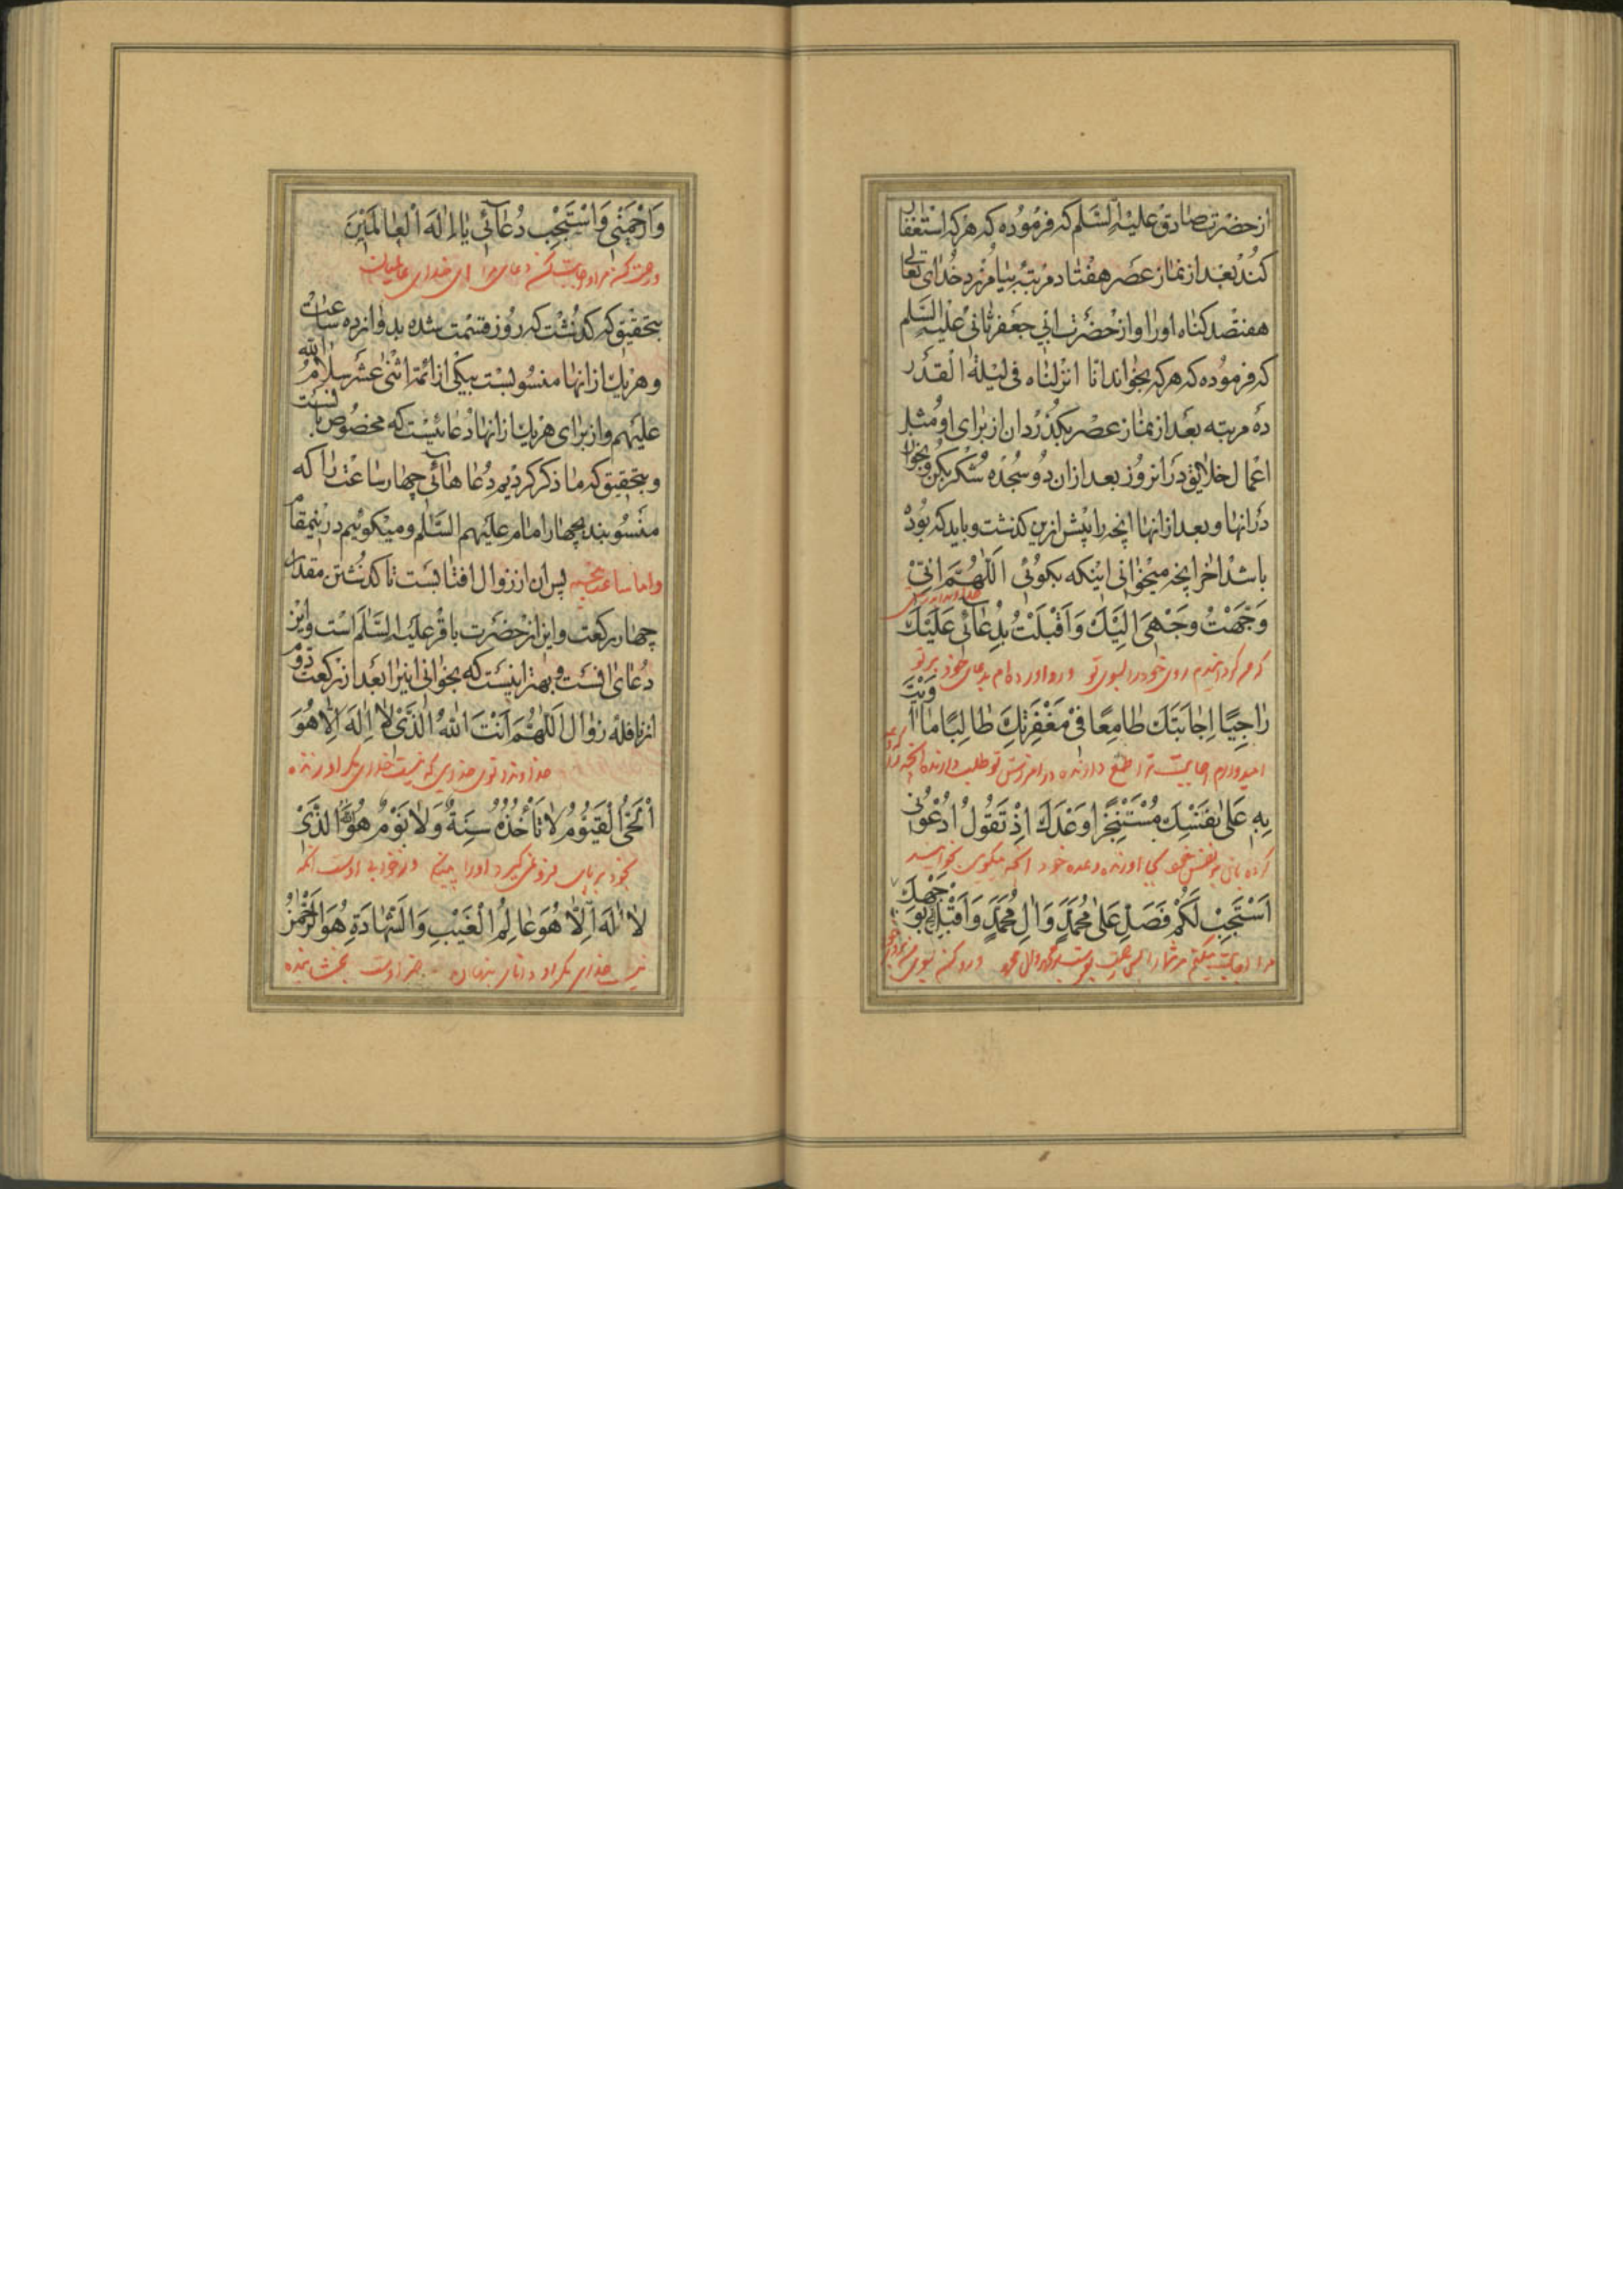 از حضرت صادق علیه السلم که فرموده که هر که استغفار
کند بعد از نماز عصر هفتاد مرتبه بیامرزد خدای تعالی
هفتصد کناه اورا و از حضرت ابی جعفر ثانی علیه السلم
که فرموده که هر که بخواند انا انزلناه فی لیلة القدر
ده مرتبه بعد از نماز عصر بکذرد ان از برای او مثل
اعمال خلایق در انروز بعد از ان دو سجده شکر بکن و بخوان
در انها و بعد از انها انچه را پیش ازین کذشت و باید که بوده
باشد اخر انچه میخوانی اینکه بکوئی اَللّٰهُمَّ اِنّیْ
وَجَّهْتُ وَجْهیَ اِلَیْكَ وَاَقْبَلْتُ بِدُعٰائی عَلَیْكَ
روی خودرا بسوی تو و رو اورده ام بدعای خود بر تو
رٰاجِیًا اِجٰابَتَكَ طٰامِعًا فیْ مَغْفِرَتِكَ طٰالِبًا مٰا وَاَیْتَ
امیدوارم اجابت ترا طمع دارنده در امرزش تو طلب دارنده انچه
بِهِ عَلیٰ نَفْسِكَ مُسْتَنْجِزًا وَعْدَكَ اِذْ تَقُولُ اُدْعُونی
وعده خود انکه میکوی بخوانید
اَسْتَجِبْ لَكُمْ فَصَلِّ عَلیٰ مُحَمَّدٍ وَاٰلِ مُحَمَّدٍ وَاَقْبِلْ اِلَیَّ بِوَجْهِكَ
مرا اجابت میکنم مر شما را پس رحمت بفرست بر محمد وال محمد و رو کن بسوی من
وَارْحَمْنی وَاسْتَجِبْ دُعٰائی یٰا اِلٰهَ الْعٰالَمیْنَ
ورحمت کن مرا و اجابت کن دعای مرا ای خدای عالمیان
بتحقیق که کذشت که روز قسمت شده بدوانزده ساعت
و هر یك از انها منسوبست بیکی از ائمه اثنی عشر سلام الله
علیهم و از برای هر یك از انها دعائیست که مخصوص بانست
و بتحقیق که ما ذکر کردیم دعاهائی چهار ساعت را که
منسوبند بچهار امام علیهم السلم و میکوئیم در اینمقام
واما ساعت پنجم پس ان از زوال افتابست تا کذشتن مقدار
چهار رکعت و این از حضرت باقر علیه السلم است و این
دعای انست و بهتر اینست که بخوانی اینرا بعد از رکعت دوم
از نافله زوال اَللّٰهُمَّ اَنْتَ اللّٰهُ الَّذیْ لٰا اِلٰهَ اِلّٰا هُوَ
خداوندا توی خدای که نیست خدای مکر او زنده
اَلْحَیُّ الْقَیُّومُ لٰا تَأْخُذُهُ سِنَةٌ وَلٰا نَوْمٌ هُوَ اللّٰهُ الَّذیْ
بخود بر پای فرو نمی کیرد اورا پینکی و نه خوابی اوست انکه
لٰا اِلٰهَ اِلّٰا هُوَ عٰالِمُ الْغَیْبِ وَالشَّهٰادَةِ هُوَ الرَّحْمٰنُ
نیست خدای مکر او دانای پنهان اوست بخشاینده